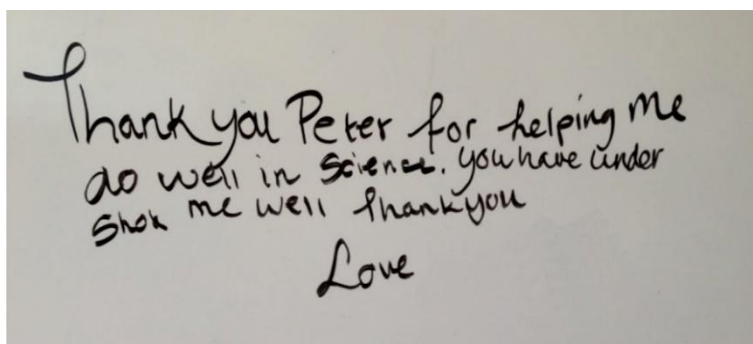 Thank you Peter for helping me
do well in Science. you have under
Shok me well thankyou
Love